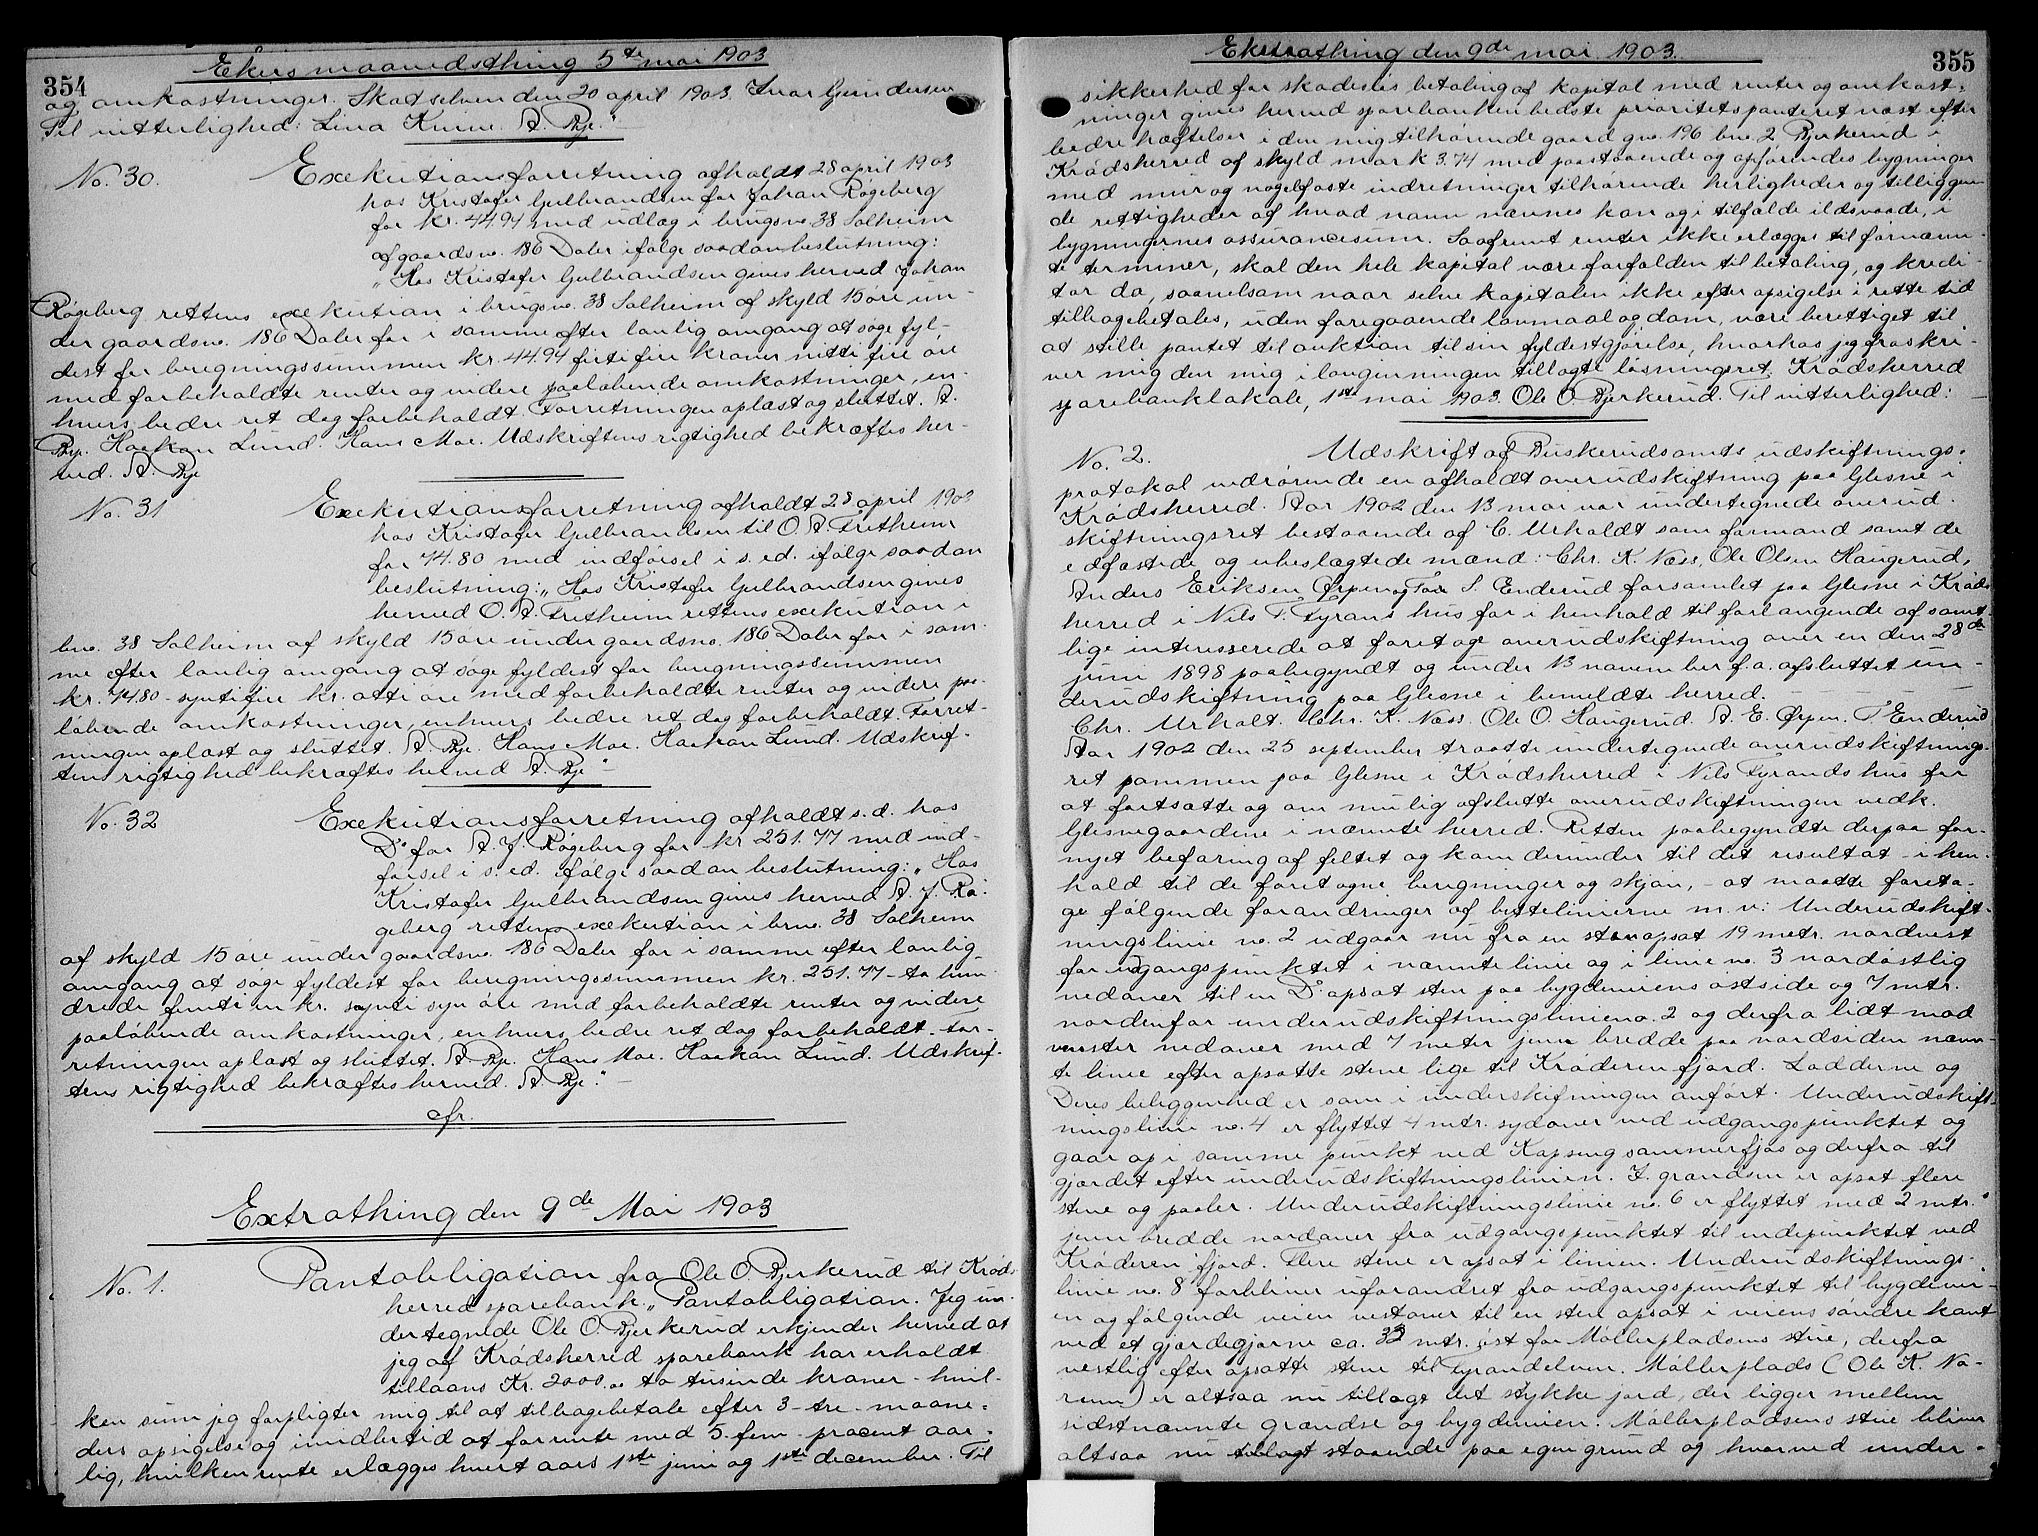 354
Ekers maanedsthing 5te mai 1903
og omkostninger. Skotselven den 20 april 1903. Ivar Gundersen
Til vitterlighed: Lina Knive. A. Bye."
No. 30. Exekutionsforretning afholdt 28 april 1903
hos Kristofer Gulbrandsen for Johan Røgeberg
for kr. 44.94 med udlæg i brugsno. 38 Solheim
af gaardsno. 186 Daler ifølge saadan beslutning:
"Hos Kristofer Gulbrandsen gives herved Johan
Røgeberg rettens exekution i brugsno. 38 Solheim af skyld 15 øre un-
der gaardsno. 186 Daler for i samme efter lovlig omgang at søge fyl-
dest for beregningssummen kr. 44.94 firti fire kroner nitti fire øre
med forbeholdte renter og videre paaløbende omkostninger, en-
hvers bedre ret dog forbeholdt. Forretningen oplæst og sluttet. A.
Bye. Haakon Lund. Hans Moe. Udskriftens rigtighed bekræftes her-
ved. A. Bye
No. 31 Exekutionsforretning afholdt 28 april 1903
hos Kristofer Gulbrandsen til O. A. Fretheim
for 74.80 med indførsel i s. ed. ifølge saadan
beslutning: "Hos Kristofer Gulbrandsen gives
herved O. A. Fretheim rettens exekution i
bno. 38 Solheim af skyld 15 øre under gaardsno. 186 Daler for i sam-
me efter lovlig omgang at søge fyldest for beregningssummen
kr. 74.80 - syttifire kr. otti øre med forbeholdte renter og videre paa-
løbende omkostninger, enhvers bedre ret dog forbeholdt. Forret-
ningen oplæst og sluttet. A. Bye. Hans Moe. Haakon Lund. Udskrif-
tens rigtighed bekræftes herved A. Bye"
No. 32 Exekutionsforretning afholdt s. d. hos
Do for A. J. Røgeberg for kr 251.77 med ind-
førsel i s. ed. ifølge saadan beslutning: "Hos
Kristofer Gulbrandsen gives herved A. J. Rø-
geberg rettens exekution i bno. 38 Solheim
af skyld 15 øre under gaardsno. 186 Daler for i samme efter lovlig
omgang at søge fyldest for beregningssummen kr. 251.77 - to hun-
drede femti en kr. sytti syv øre med forbeholdte renter og videre
paaløbende omkostninger, enhvers bedre ret dog forbeholdt. For-
retningen oplæst og sluttet. A. Bye. Hans Moe. Haakon Lund. Udskrif-
tens rigtighed bekræftes herved. A. Bye."
cfr.
Extrathing den 9de Mai 1903
No. 1. Pantobligation fra Ole O. Bjerkerud til Krøds-
herred sparebank. "Pantobligation. Jeg un-
dertegnede Ole O. Bjerkerud erkjender herved at
jeg af Krødsherred sparebank har erholdt
tillaans Kr. 2000.00 to tusinde kroner - hvil-
ken sum jeg forpligter mig til at tilbagebetale efter 3 - tre - maane-
ders opsigelse og imidlertid at forrente med 5 - fem - procent aar-
lig, hvilken rente erlægges hvert aars 1ste juni og 1ste december. Til
355
Ekstrathing den 9de mai 1903.
sikkerhed for skadesløs betaling af kapital med renter og omkost-
ninger gives herved sparebanken bedste prioritets panteret næst efter
bedre hæftelser i den mig tilhørende gaard gno. 196 bno. 2 Bjerkerud i
Krødsherred af skyld mark 3.74 med paastaaende og opførendes bygninger
med mur og nagelfaste indretninger tilhørende herligheder og tilliggen-
de rettigheder af hvad navn nævnes kan og i tilfælde ildsvaade, i
bygningernes assurancesum. Saafremt renter ikke erlægges til fornævn-
te terminer, skal den hele kapital være forfalden til betaling, og kredi-
tor da, saavelsom naar selve kapitalen ikke efter opsigelse i rette tid
tilbagebetales, uden foregaaende lovmaal og dom, være berettiget til
at stille pantet til auktion til sin fyldestgjørelse, hvorhos jeg fraskri-
ver mig den mig i lovgivningen tillagte løsningsret. Krødsherred
sparebanklokale, 1ste mai 1903. Ole O. Bjerkerud. Til vitterlighed: -
No. 2. Udskrift af Buskerud amts udskiftnings-
protokol vedrørende en afholdt overudskiftning paa Glesne i
Krødsherred. Aar 1902 den 13 mai var undertegnede overud-
skiftningsret bestaaende af C. Urholdt som formand samt de
edfæstede og ubeslægtede mænd: Chr. K. Næss, Ole Olsen Haugerud,
Anders Eriksen Ørpen og Tov S. Enderud forsamlet paa Glesne i Krøds-
herred i Nils T. Fyrans hus for i henhold til forlangende af samt-
lige interesserede at foretage overudskiftning over en den 28de
juni 1898 paabegyndt og under 13 november f. a. afsluttet un-
derudskiftning paa Glesne i bemeldte herred. -
Chr. Urholt. Chr. K. Næss. Ole O. Haugerud. A. E. Ørpen. T. Enderud
Aar 1902 den 25 september traatte undertegnede overudskiftnings-
ret sammen paa Glesne i Krødsherred i Nils Fyrands hus for
at fortsætte og om mulig afslutte overudskiftningen vedk.
Glesnegaardene i nævnte herred. Retten paabegyndte derpaa for-
nyet befaring af feltet og kom derunder til det resultat - i hen-
hold til de foretagne beregninger og skjøn, - at maatte foreta-
ge følgende forandringer af byttelinierne m. v.: Underudskift-
ningslinie no. 2 udgaar nu fra en sten opsat 19 metr. nordvest
for udgangspunktet i nævnte linie og i linie no. 3 nordøstlig
nedover til en Do opsat sten paa bygdeveiens ostside og 7 mtr.
nordenfor underudskiftningslinieno. 2 og derfra lidt mod
venster nedover med 7 meter jevn bredde paa nordsiden nævn-
te linie efter opsatte stene lige til Krøderenfjord. Lodderne og
Deres beliggenhed er som i underskifningen anført. Underudskift-
ningslinie no. 4 er flyttet 4 mtr. sydover ved udgangspunktet og
gaar op i samme punkt ved Kopseng sommerfjøs og derfra til
gjærdet efter underudskiftningslinien. I grændsen er opsat flere
stene og pæler. Underudskiftningslinie no. 6 er flyttet med 2 mtr.
jevn bredde nordover fra udgangspunktet til endepunktet ved
Krøderen fjord. Flere stene er opsat i linien. Underudskiftnings-
linie no. 8 forbliver uforandret fra udgangspunktet til bygdevei-
en og følgende veien vestover til en sten opsat i veiens søndre kant
ved et gjærdegjørne ca. 32 mtr. øst for Møllerpladsens stue, derfra
vestlig efter opsatte stene til Fyrandelven. Møllerplads (Ole K. No-
rum) er altsaa nu tillagt det stykke jord, der ligger mellem
sidstnævnte grændse og bygdeveien. Møllerpladsens stue bliver
altsaa nu tillagt staaende paa egen grund og hvorved under-